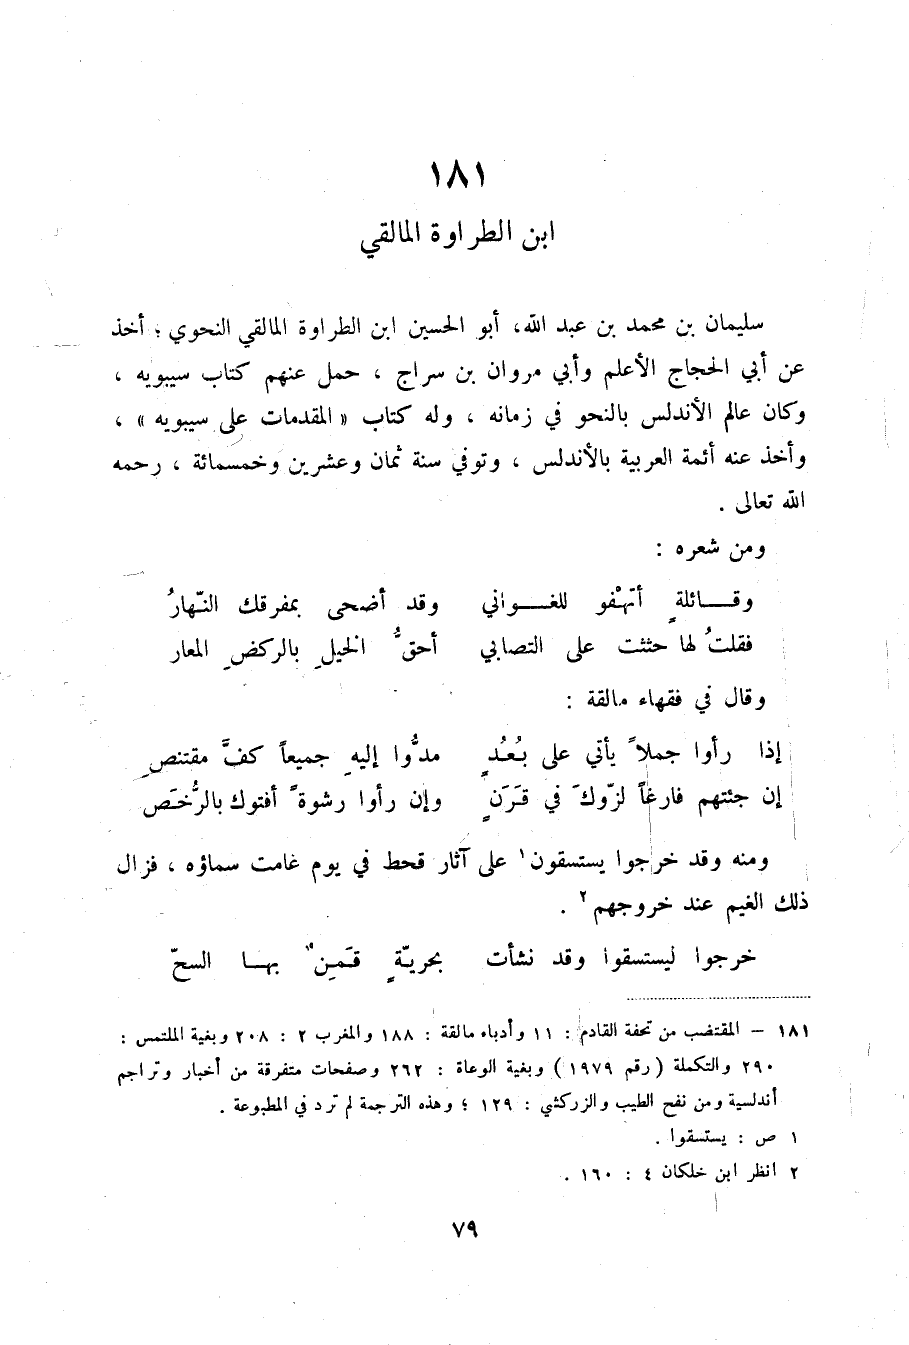 ١٨١
ابن الطراوة المالقي
سليمان بن محمد بن عبد الله، أبو الحسين ابن الطراوة المالقي النحوي ؛ أخذ
عن أبي الحجاج الأعلم وأبي مروان بن سراج ، حمل عنهم كتاب سيبويه ،
وكان عالم الأندلس بالنحو في زمانه ، وله كتاب « المقدمات على سيبويه » ،
وأخذ عنه أئمة العربية بالأندلس ، وتوفي سنة ثمان وعشرين وخمسمائة ، رحمه
الله تعالى .
ومن شعره :
وقـــائلةٍ أتهْفو للغـــواني وقد أضحى بمفرقك النّهارُ
فقلتُ لها حثثت على التصابي أحقُّ الخيلِ بالركضِ المعار
وقال في فقهاء مالقة :
إذا رأوا جملاً يأتي على بـُعـُدٍ مدُّوا إليهِ جميعاً كفَّ مقتنصِ
إن جئتهم فارغاً لزّوكَ في قـَرَنٍ وإن رأوا رشوةً أفتوك بالرُّخـَص
ومنه وقد خرجوا يستسقون١ على آثار قحط في يوم غامت سماؤه ، فزال
ذلك الغيم عند خروجهم٢ .
خرجوا ليستسقوا وقد نشأت بحريـّةٍ قـَمـِنٌ بهـا السحّ
١٨١ – المقتضب من تحفة القادم : ١١ وأدباء مالقة : ١٨٨ والمغرب ٢ : ٢٠٨ وبغية الملتمس :
٢٩٠ والتكملة ( رقم ١٩٧٩ ) وبغية الوعاة : ٢٦٢ وصفحات متفرقة من أخبار وتراجم
أندلسية ومن نفح الطيب والزركشي : ١٢٩ ؛ وهذه الترجمة لم ترد في المطبوعة .
١ ص : يستسقوا .
٢ انظر ابن خلكان ٤ : ١٦٠ .
٧٩